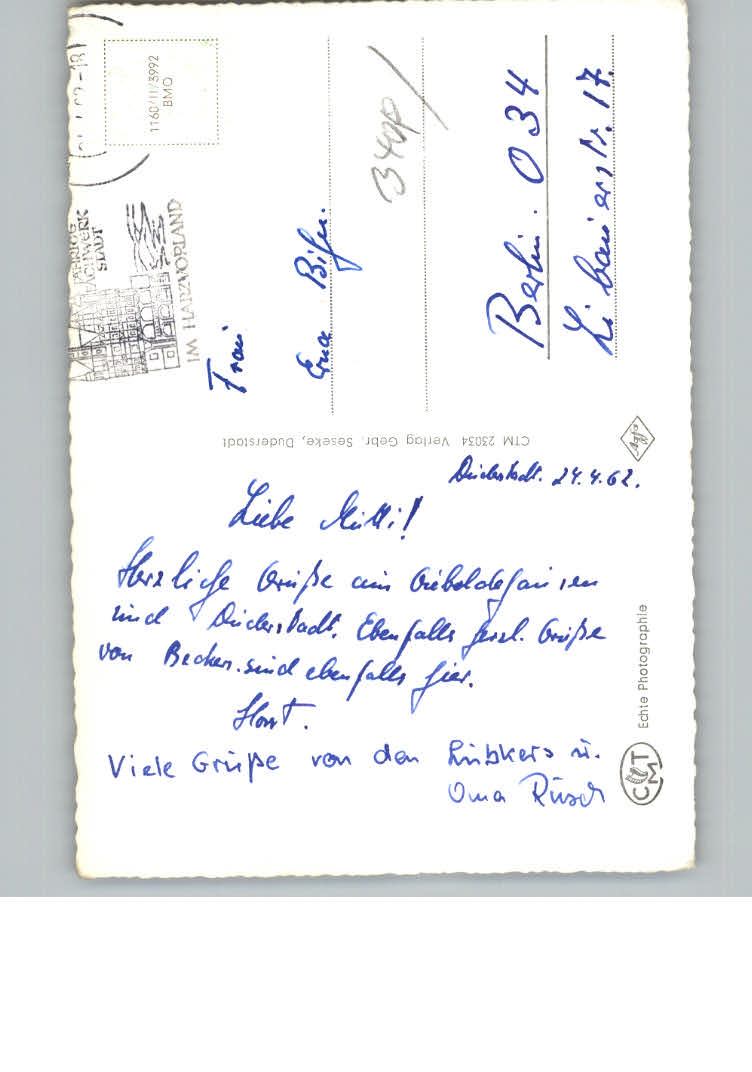 Duderstadt. 24.4.62.
Liebe Mutti!
Herzliche Grüße aus Gieboldehausen
und Duderstadt. Ebenfalls herzl. Grüße
von Becker. sind ebenfalls hier.
Horst.
Viele Grüße von den Lübkers u.
Oma Rüsch
Frau
Erna
Berlin. O 34
Libauerstr. 17.
340p
1160/II/3992
BMO
JÄHRIGE
FACHWERK
STADT
IM HARZVORLAND
CTM 23034 Verlag Gebr. Seseke, Duderstadt
Agfa
Echte Photographie
CTM